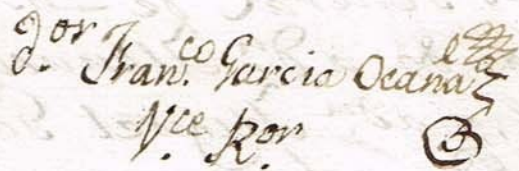 D.or Fran.co Garcia Ocana
Vce R.or